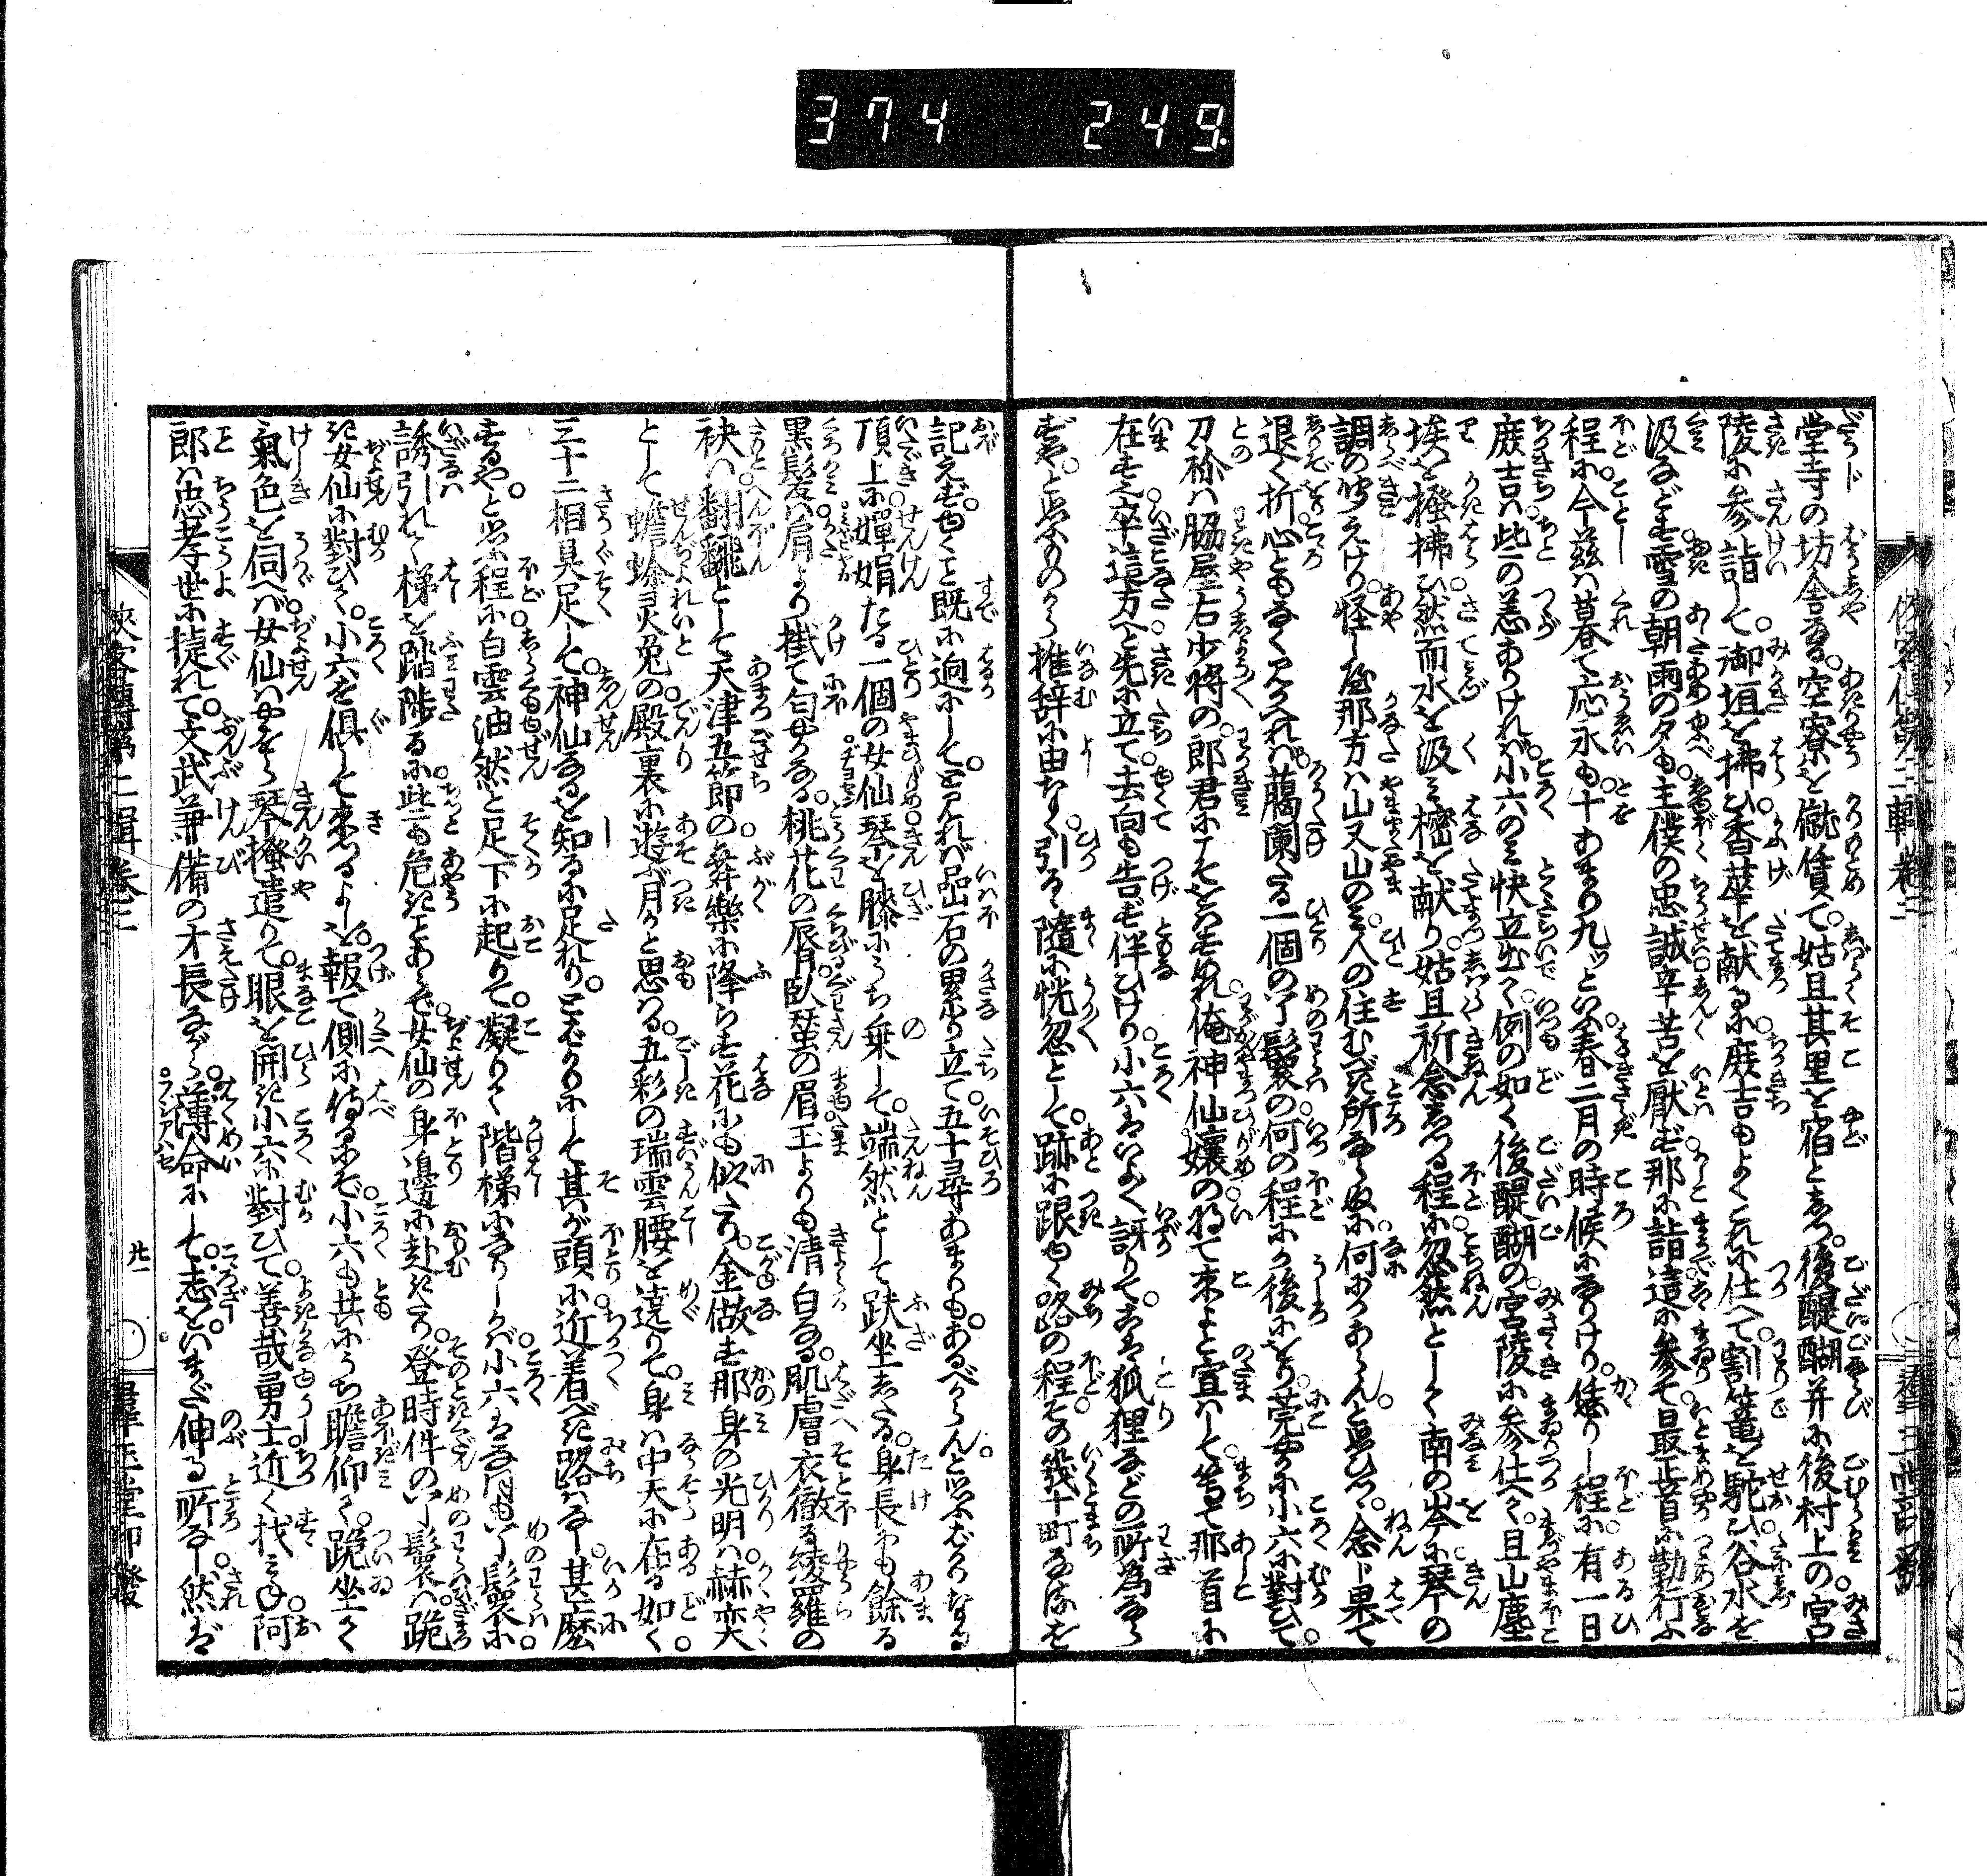 374 249
堂寺の坊舎なる。空寮を僦賃て。姑且其里を宿としつ。後醍醐并に後村上の。宮
陵に参詣して。御垣を拂ひ香華を献るに。庭吉もよくこれに仕へて。割篭を駝ひ谷水を
汲などす。雪の朝雨の夕も。主僕の忠誠辛苦を厭ず。那に詣這に参て。最正首に勤行ふ
程に。今茲は暮て応永も。十あまり九ッといふ。春二月の時候になりけり。恁りし程に。有一日
庭吉は。些の恙ありければ。小六のみ快立出て。例の如く後醍醐の。宮陵に参仕へ。且山塵
埃を掻拂ひ。然而水を汲み樒を献り。姑且祈念しつる程に。忽然として南の岑に。琴の
調の聞えけり。怪しや那方は山又山のみ。人の住むべき所ならぬに。何かあらんと思ひつゝ。念じ果て
退く折。心ともなく見かへれば。﨟闌たる一個の丫鬟の。何の程にか後にをり。莞尓に小六に對ひて
刀祢は脇屋右少将の。郎君にこそをはすめれ。俺神仙孃の。将て来よと宣はして。等て那首に
在す。卒這方へと先に立て。去向も告ず伴ひけり。小六はいよゝ訝りて。こは狐狸などの所為なら
ずや。と思ふものから推辞に由なく。引るゝ随に恍忽として。跡に跟ゆく路の程。その幾十町なるを
記えず。ゆく〳〵既に逈にして。と見れば品石の累り立て。五十尋あまりも。あるべからんと思ふばかりなる
頂上に。嬋娟たる一個の女仙。琴を膝にうち乗して。端然として趺坐したる。身長にも餘る
黒髪は。肩より掛て匂やかなる。桃花の唇。臥蚕の眉。玉よりも清白なる。肌膚衣に徹る綾羅の
袂は。翻飜として天津五節の。舞樂に降らす花にも似たり。金做す那身の光明は。赫奕
として蟾蜍灵兔の。殿裏に遊ぶ月かと思はる。五彩の瑞雲腰を遶りて。身は中天に在る如く。
三十二相具足して。神仙なるを知るに足れり。とばかりにして其が頭に。近着べき路はなし。甚麽に
するや。と思ふ程に。白雲油然と足下に起りて。凝りて階梯になりしかば。小六は尚も丫鬟に。
誘引れて梯を。踏陟るに些も危きことあらで。女仙の身邊に赴きたり。登時件の丫鬟は。跪
き女仙に對ひて。小六を倶して来つるよしを。報て側に侍るになん。小六も共にうち瞻仰て。跪坐て
氣色を伺へば。女仙はやをら琴掻遣りて。眼を開き小六に對ひて。善哉勇士近く找みね。阿
郎は忠孝世に提れて。文武兼備の才長ながら。薄命にして。志を。いまだ伸る所なし。然ば
侠客傳第二輯巻二
廿一
群玉堂印發